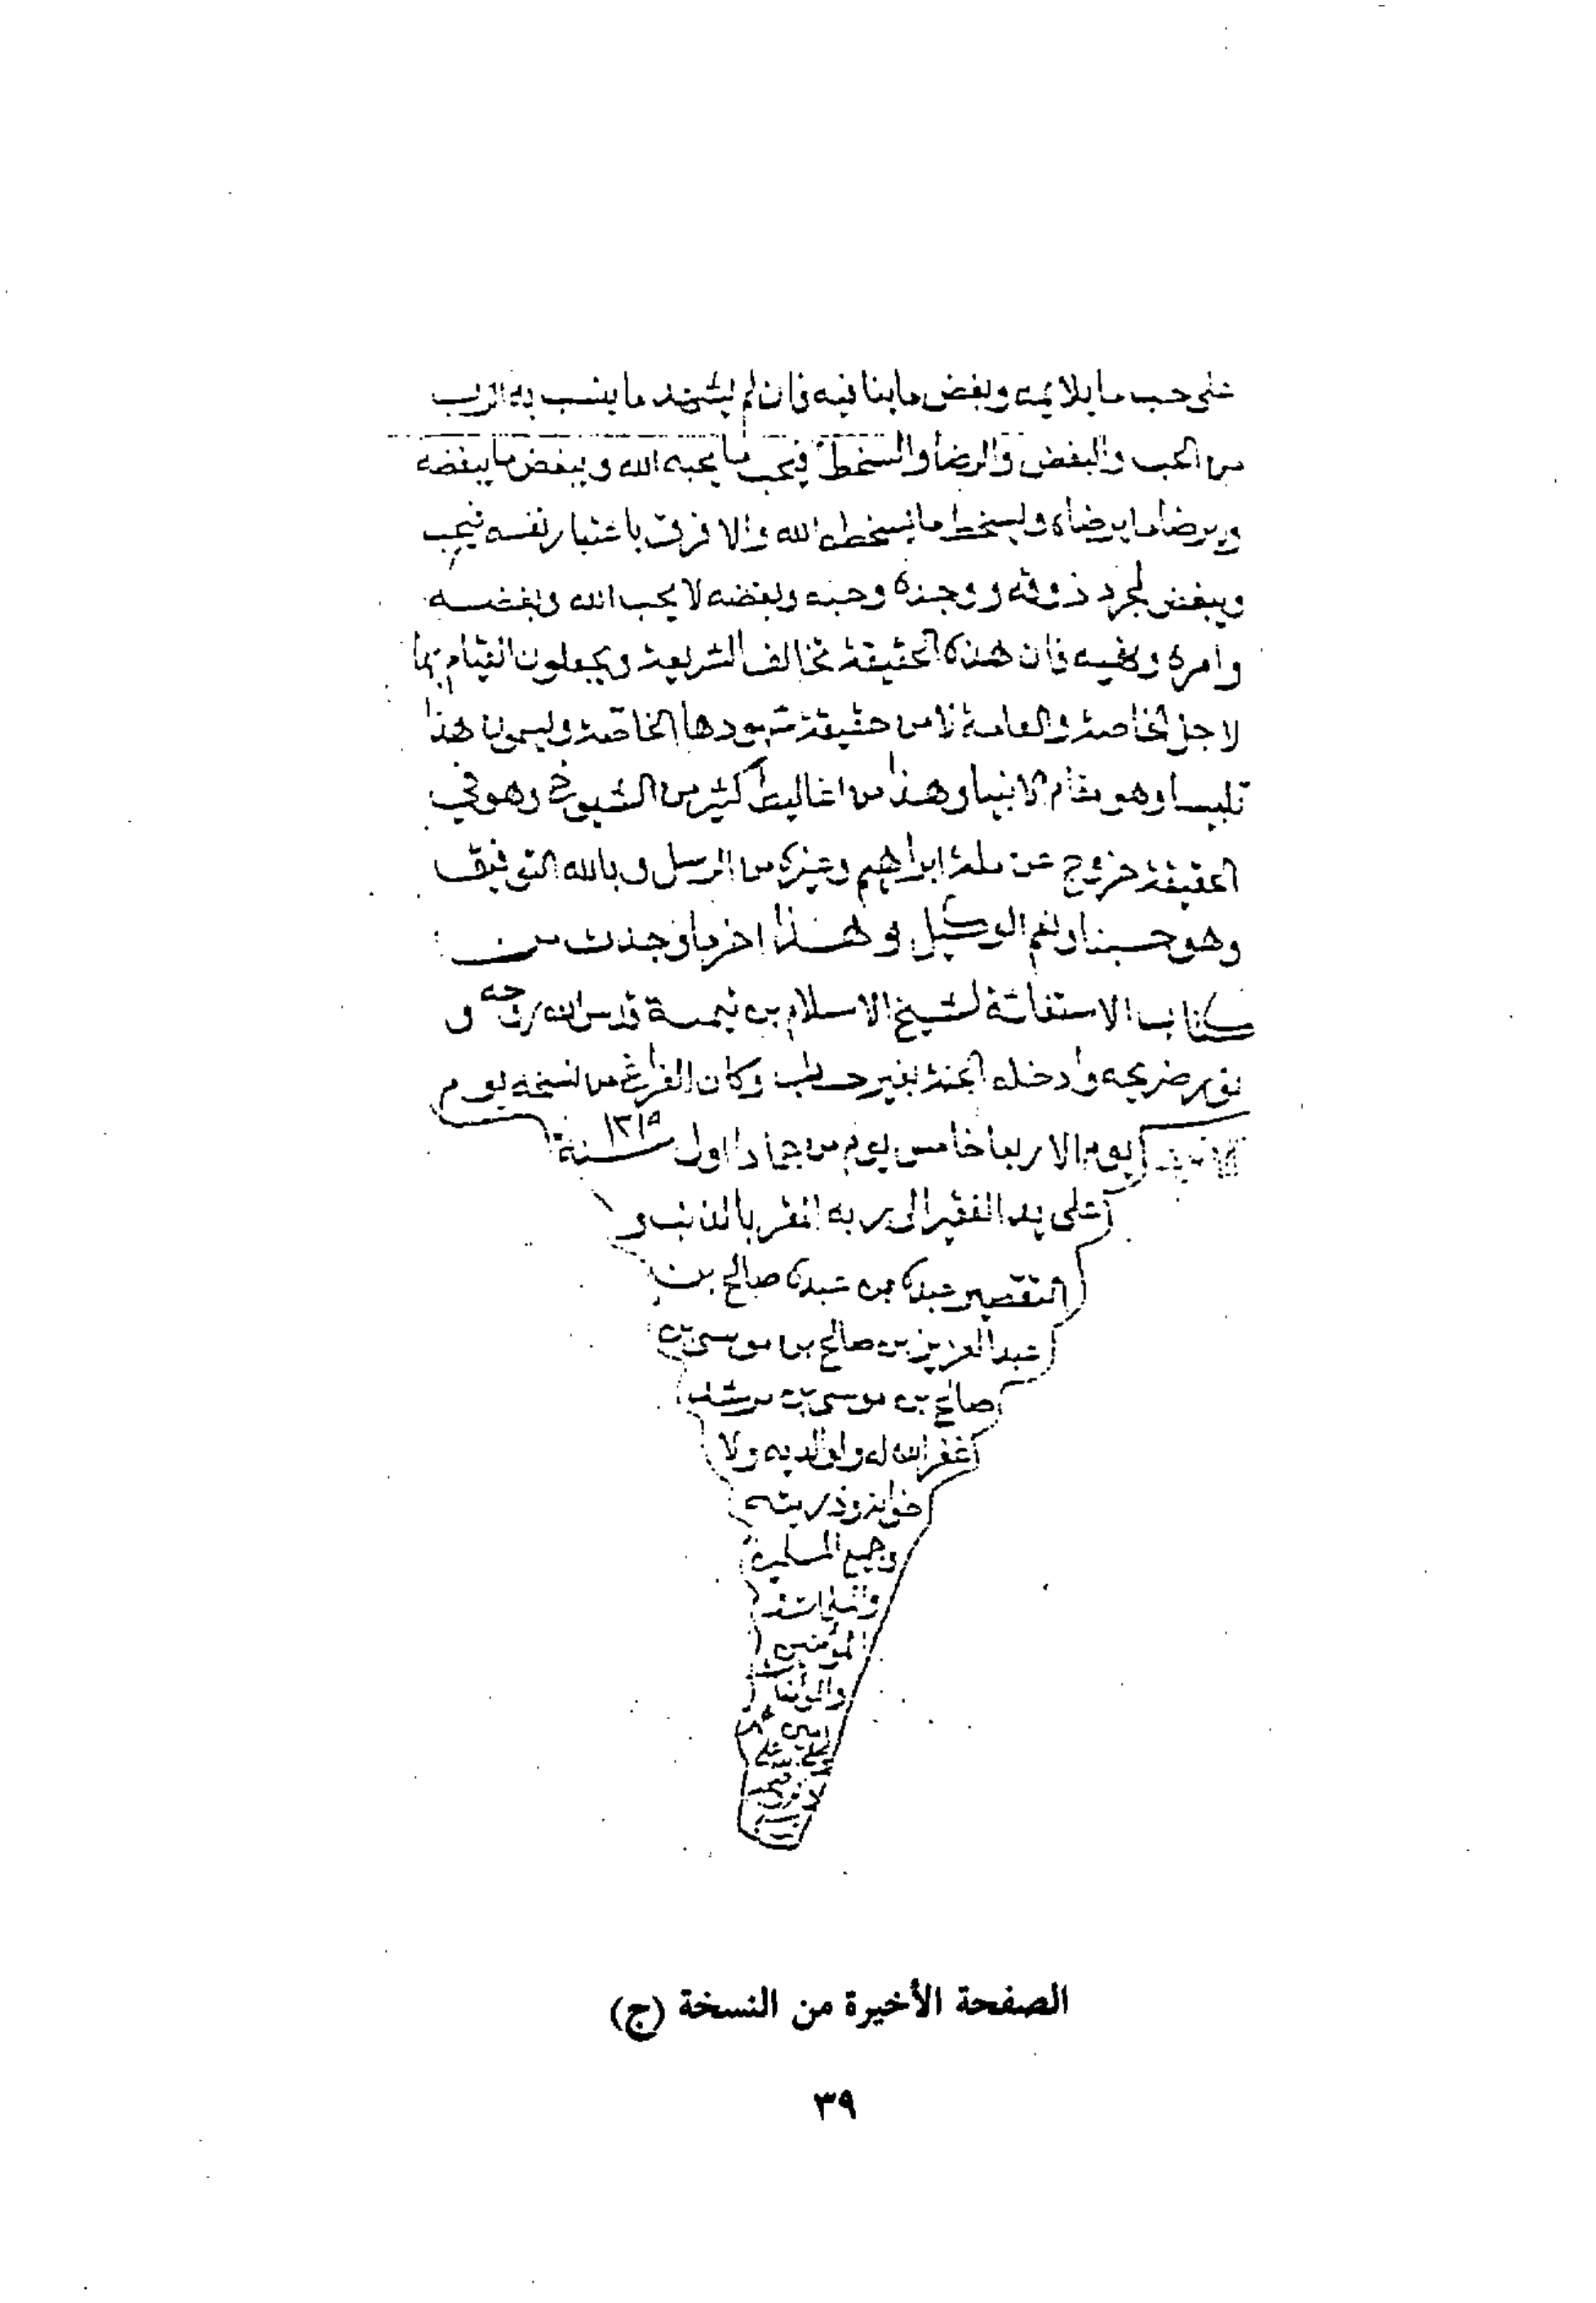 على حب ما يلايمه وبغض ما ينافيه فان لم يشهد ما ينسب به الرب
من الحب والبغض والرضا والسخط فيحب ما يحبه الله ويبغض ما يبغضه
ويرضا ما يرضاه ويسخط ما يسخطه الله والا فرق باعتبار نفسه فيحب
ويبغض لمجرد ذوقه ووجده وحبه وبغضه لا يحب الله وبغضه
وامره ونهيه فان هذه الحقيقة تخالف الشريعة ويجعلون القيام بها
لاجل الخاصة والعامة لا من حقيقة شهودها الخاصة ويسمون هذا
تلبيسا وهو مقام الانبيا وهذا من اغاليط كثير من الشيوخ وهو في
الحقيقة خروج عن ملة ابراهيم وغيره من الرسل وبالله التوفيق
وهو حسبنا ونعم الوكيل وهذا اخر ما وجدت من
كتاب الاستغاثة لشيخ الاسلام بن تيمية قدس الله روحه و
نور ضريحه وادخله الجنة بغير حساب وكان الفراغ من نسخه يوم
يوم الاربعا خامس يوم من جماد اول سنة ١٣١٩
على يد الفقير الى ربه المقر بالذنب و
التقصير عبده بن عبده صالح بن
عبد العزيز بن صالح بن موسى بن
صالح بن موسى بن مرشد
غفر الله له ولوالديه ولا
خوانه وذريته
وجميع المسلمين
والمسلمات
المؤمنين
والمؤمنات
الصفحة الأخيرة من النسخة (ج)
٣٩